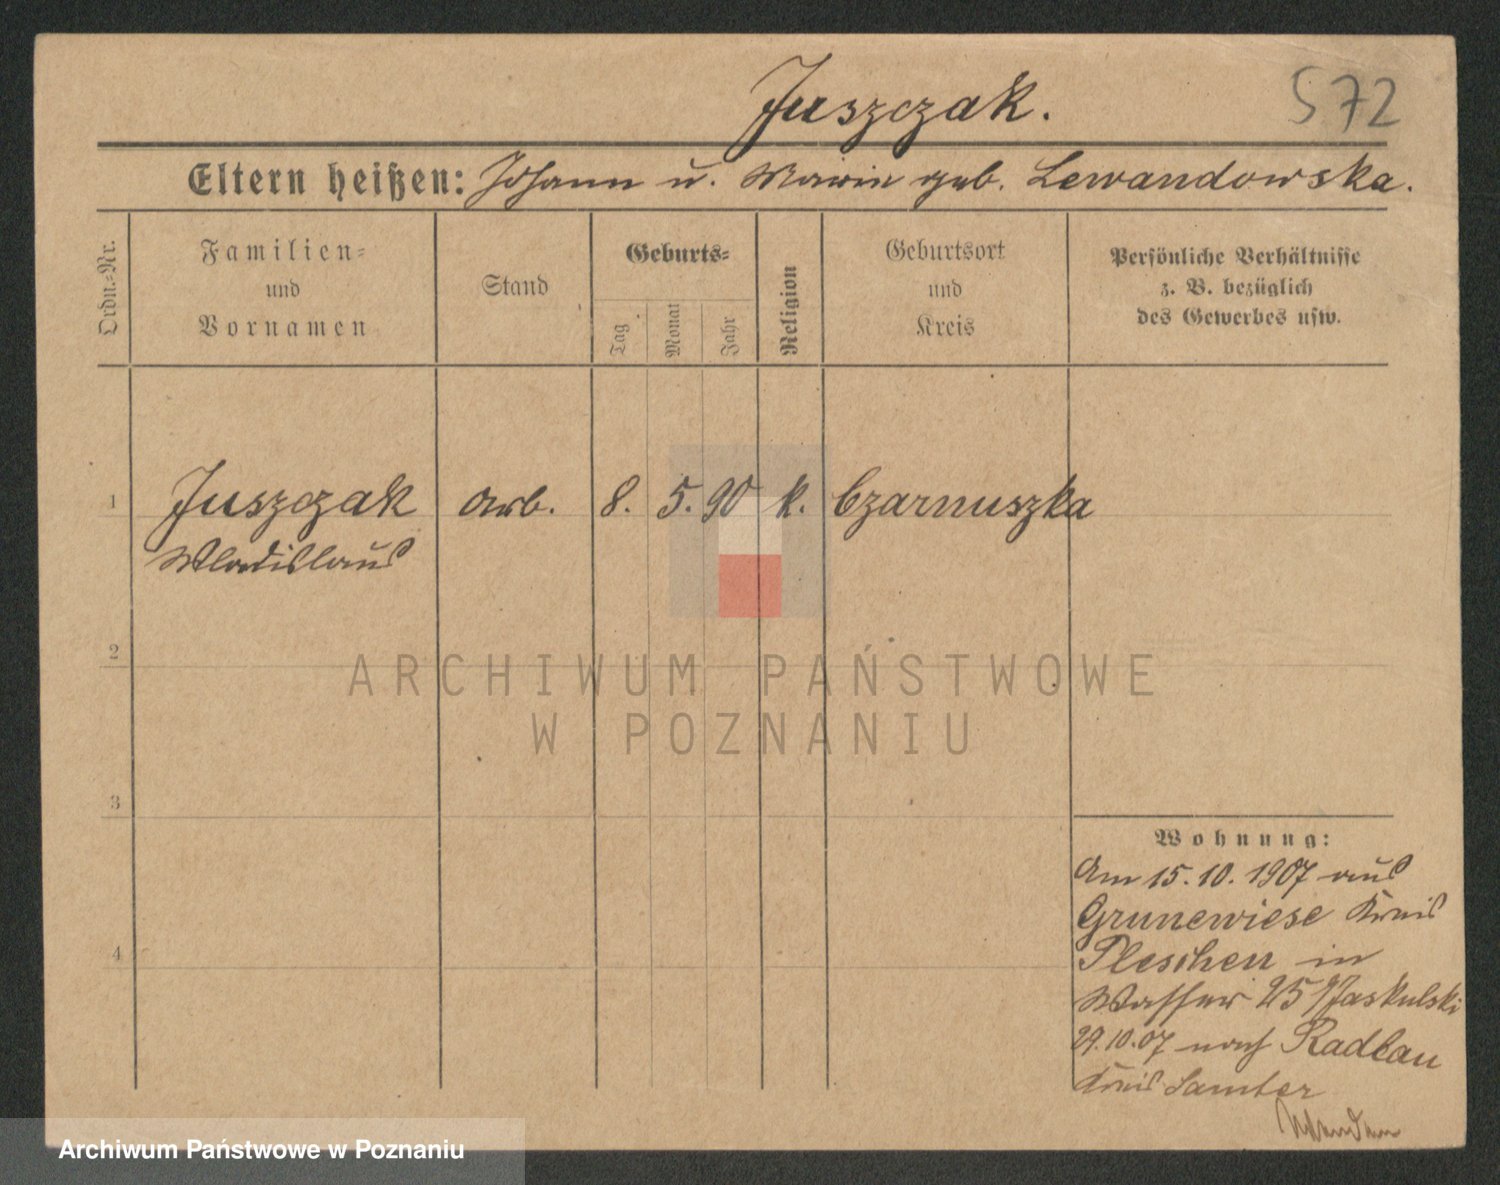 Juszczak.
572
Eltern heißen: Johann u. Maria geb. Lewandowska.
Ordn.=Nr.
Familien=
und
Vornamen
Stand
Geburts=
Tag
Monat
Jahr
Religion
Geburtsort
und
Kreis
Persönliche Verhältnisse
z. B. bezüglich
des Gewerbes usw.
1 Juszczak Arb. 8. 5. 90 k. Czarnuszka
Wladislaus
2
ARCHIWUM PAŃSTWOWE
W POZNANIU
3
Wohnung:
Am 15.10.1907 aus
Grunewiese Kreis
4
Pleschen in
Wasser 25/Jaskulski
29.10.07 nach Radlau
Kreis Samter
Archiwum Państwowe w Poznaniu